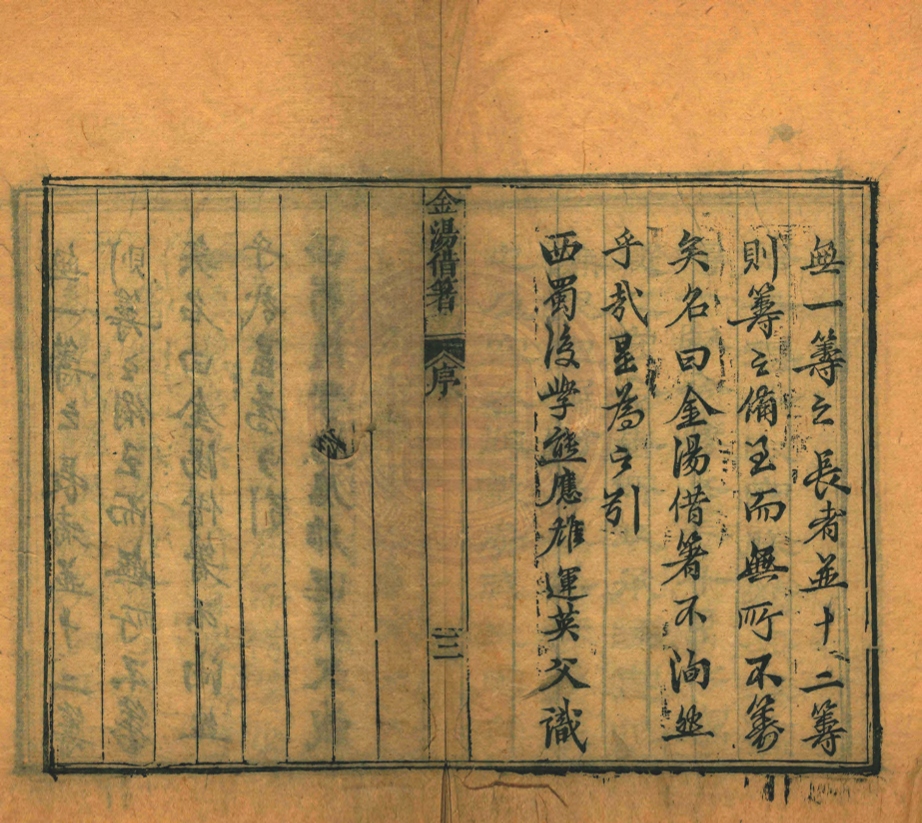 無一籌之長者並十二籌
則籌之備至而無所不籌
矣名曰金湯借箸不洵然
乎哉是為之引
西蜀後學熊應雄運英父識
金湯借箸
序
三